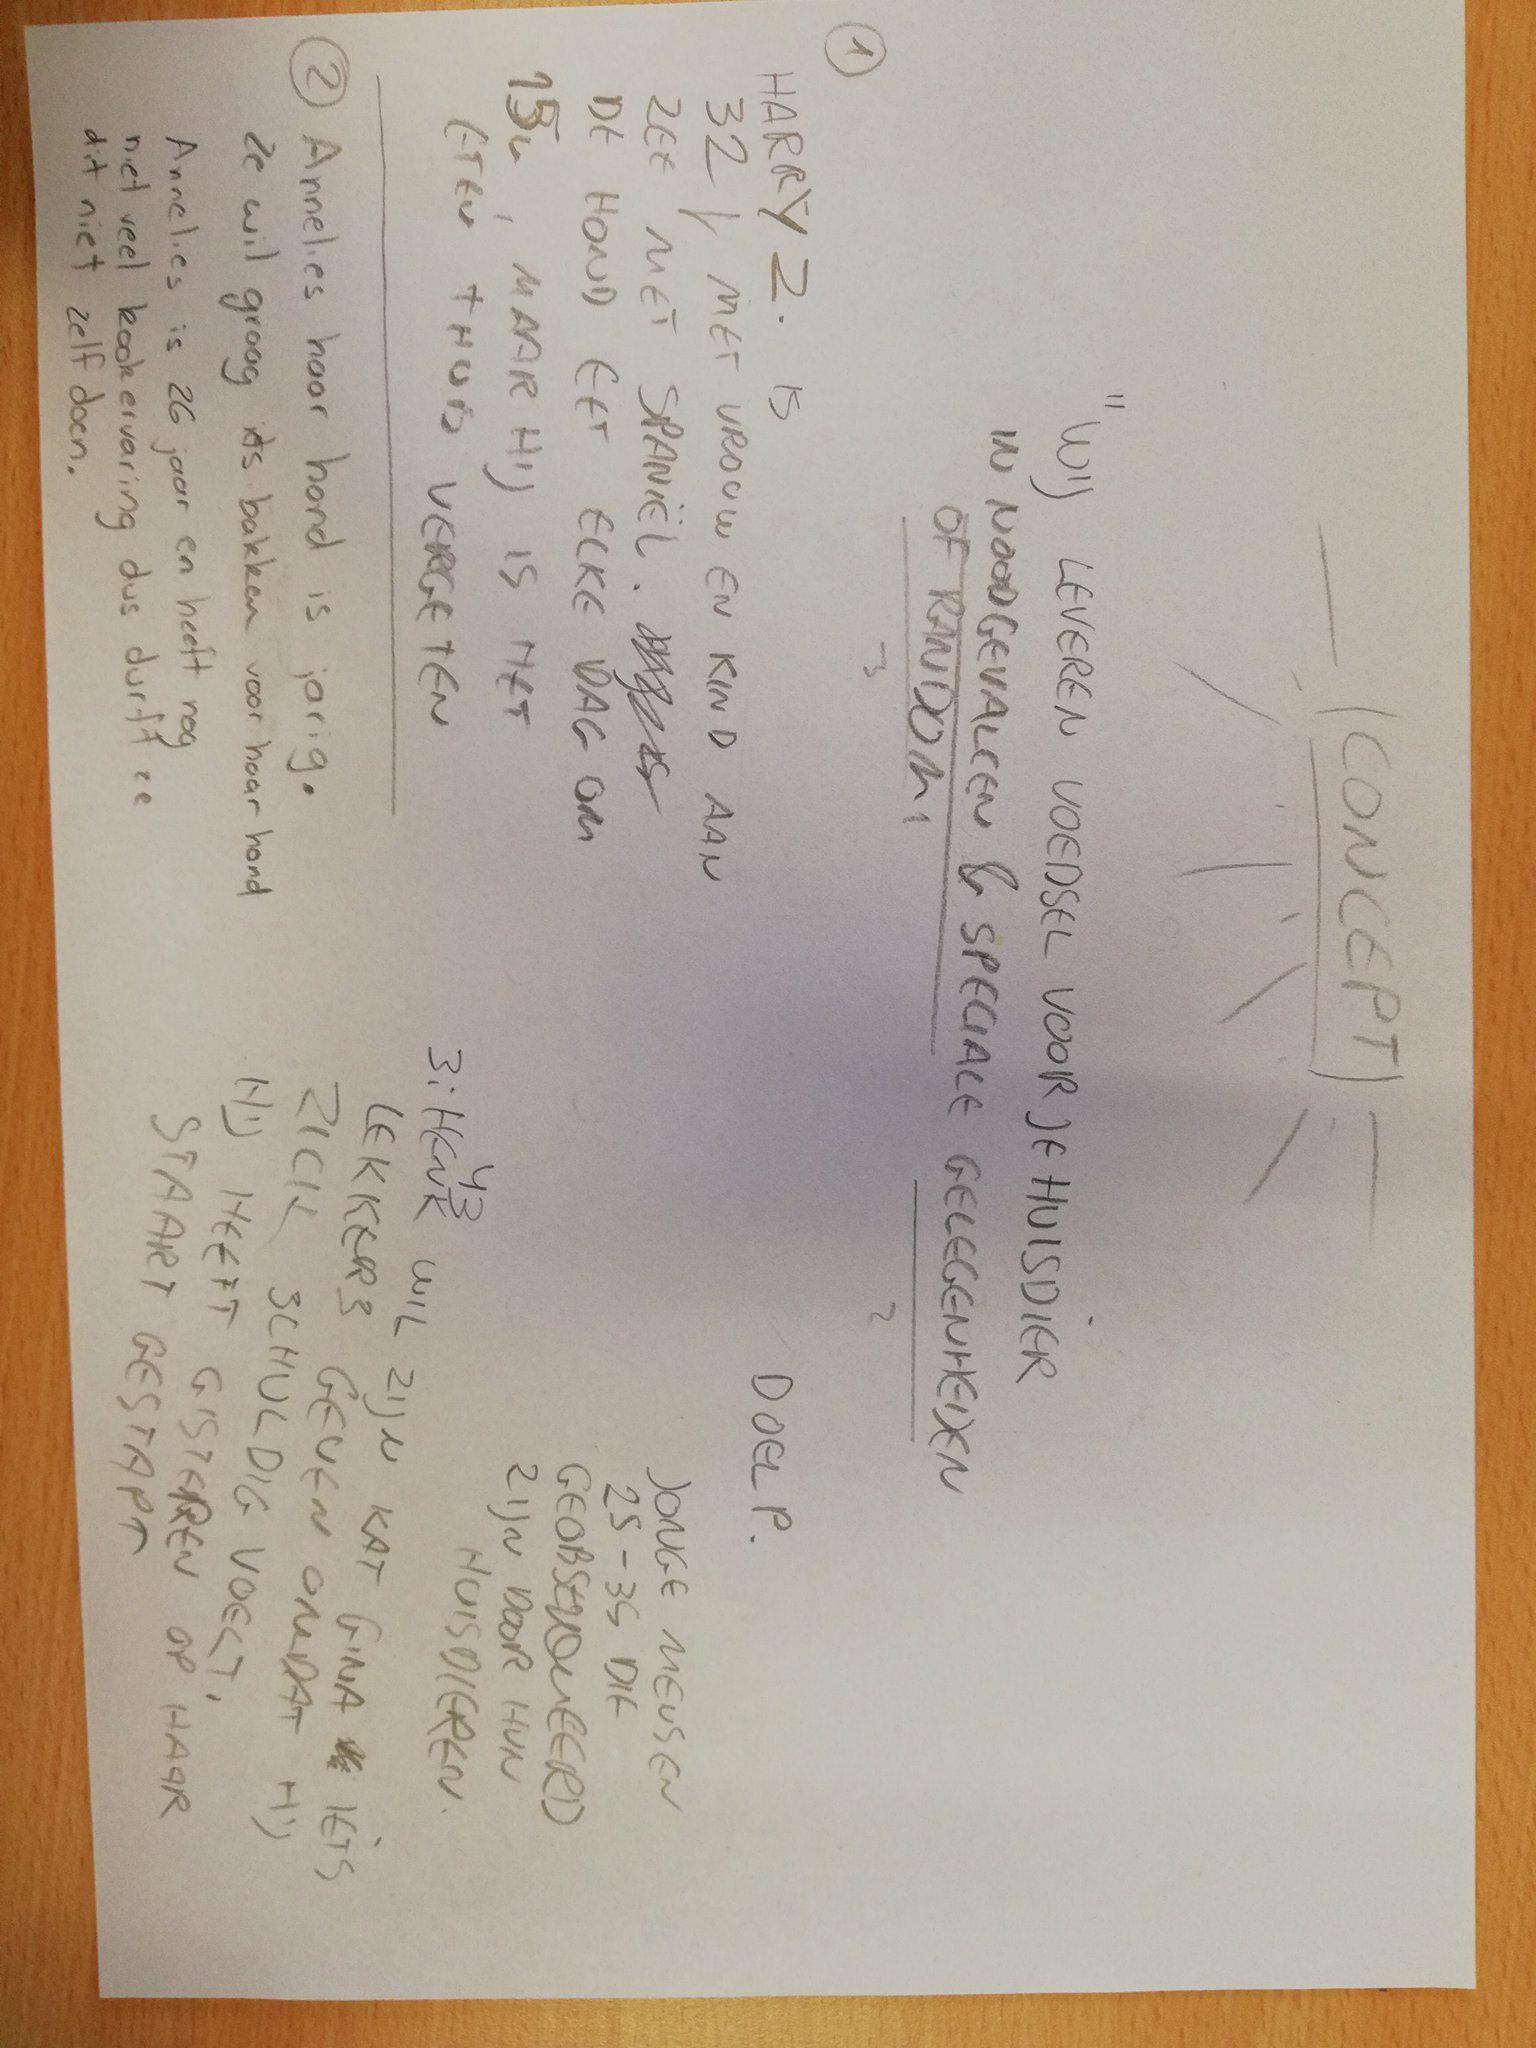 (CONCEPT)
"WIJ LEVEREN VOEDSEL VOOR JE HUISDIER
IN NOODGEVALLEN & SPECIALE GELEGENHEIDEN
OF RANDOM 1
3 2
1
HARRY Z. IS
32 j MET VROUW EN KIND AAN
ZEE MET SPANIËL.
DE HOND EET ELKE DAG OM
15u, MAAR HIJ IS HET
ETEN THUIS VERGETEN
2 Annelies haar hond is jarig.
Ze wil graag iets bakken voor haar hond
Annelies is 26 jaar en heeft nog
niet veel kookervaring dus durft ze
dit niet zelf doen.
DOEL P.
JONGE MENSEN
25-35 DIE
GEOBSEDOMEERD
ZIJN DOOR HUN
HUISDIEREN.
43
3: HENK WIL ZIJN KAT GINA IETS
LEKKERS GEVEN OMDAT HIJ
ZICH SCHULDIG VOELT.
HIJ HEEFT GISTEREN OP HAAR
STAART GESTAPT